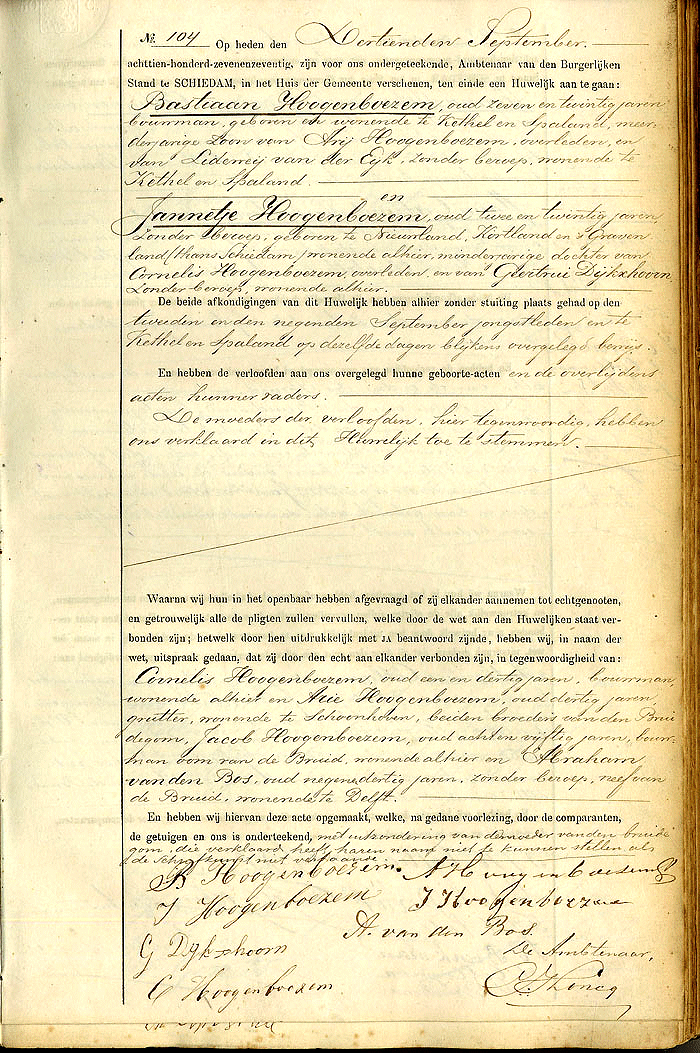 № 104 Op heden den Dertienden September.
achttien-honderd-zevenenzeventig, zijn voor ons ondergeteekende, Ambtenaar van den Burgerlijken
Stand te SCHIEDAM, in het Huis der Gemeente verschenen, ten einde een Huwelijk aan te gaan:
Bastiaan Hoogenboezem, oud zeven en twintig jaren
bouwman, geboren en wonende te Kethel en Spaland, meer-
derjarige Zoon van Arij Hoogenboezem, overleden, en
van Liderveij van der Eyk, zonder beroep, wonende te
Kethel en Spaland.
en
Jannetje Hoogenboezem, oud twee en twintig jaren,
zonder beroep, geboren te Nieuwland, Kortland en 's Graven
land /thans Schiedam/ wonende alhier, minderjarige dochter van
Cornelis Hoogenboezem, overleden, en van Geertrui Dijkxhoorn
zonder beroep, wonende alhier.
De beide afkondigingen van dit Huwelijk hebben alhier zonder stuiting plaats gehad op den
tweeden en den negenden September jongstleden en te
Kethel en Spaland op dezelfde dagen blijkens overgelegd bewijs.
En hebben de verloofden aan ons overgelegd hunne geboorte-acten en de overlijdens
acten hunner vaders.
De moeders der verloofden, hier tegenwoordig, hebben
ons verklaard in dit Huwelijk toe te stemmen.
Waarna wij hun in het openbaar hebben afgevraagd of zij elkander aannemen tot echtgenooten,
en getrouwelijk alle de pligten zullen vervullen, welke door de wet aan den Huwelijken staat ver-
bonden zijn; hetwelk door hen uitdrukkelijk met JA beantwoord zijnde, hebben wij, in naam der
wet, uitspraak gedaan, dat zij door den echt aan elkander verbonden zijn, in tegenwoordigheid van:
Cornelis Hoogenboezem, oud een en dertig jaren, bouwman,
wonende alhier en Arie Hoogenboezem, oud dertig jaren,
grutter, wonende te Schoonhoven, beiden broeders van den Brui
degom, Jacob Hoogenboezem, oud acht en vijftig jaren, bouw-
man oom van de Bruid, wonende alhier en Abraham
van den Bos, oud negenendertig jaren, zonder beroep, neef van
de Bruid, wonende te Delft.
En hebben wij hiervan deze acte opgemaakt, welke, na gedane voorlezing, door de comparanten,
de getuigen en ons is onderteekend, met uitzondering van de moeder van den bruide
gom, die verklaard heeft haren naam niet te kunnen stellen als
de schrijfkunst niet verstaande.
B Hoogenboezem. A Hoogenboezem
J Hoogenboezem J Hoogenboezem
A. van den Bos.
G Dijkxhoorn
De Ambtenaar,
C Hoogenboezem